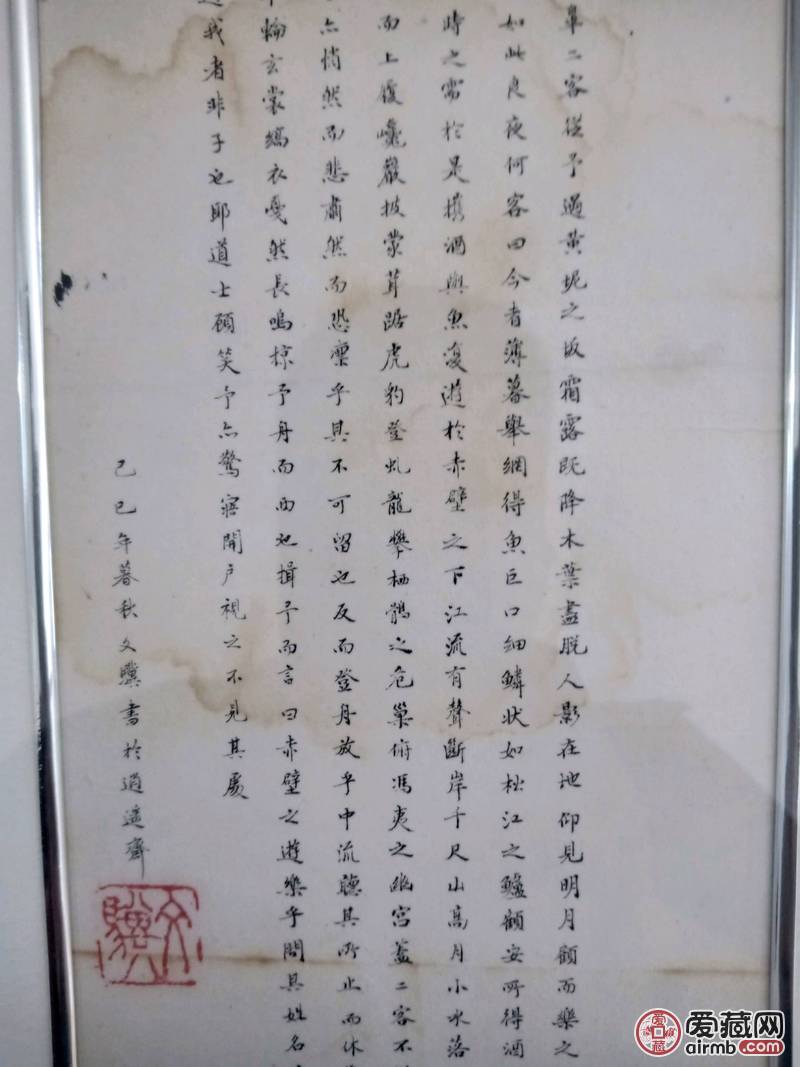 臯二客從予過黄坭之坂霜露既降木葉盡脱人影在地仰見明月顧而樂之
如此良夜何客曰今者薄暮舉網得魚巨口細鱗狀如松江之鱸顧安所得酒
時之需於是攜酒與魚復遊於赤壁之下江流有聲斷岸千尺山高月小水落
而上履巉巖披蒙茸踞虎豹登虬龍攀栖鶻之危巢俯馮夷之幽宫蓋二客不
亦悄然而悲肅然而恐凛乎其不可留也反而登舟放乎中流聽其所止而休
輪玄裳縞衣戛然長鳴掠予舟而西也揖予而言曰赤壁之遊樂乎問其姓名
我者非子也耶道士顧笑予亦驚寤開户視之不見其處
己巳年暮秋文驥書於逍遥齋
文驥
爱藏网
airmb.com